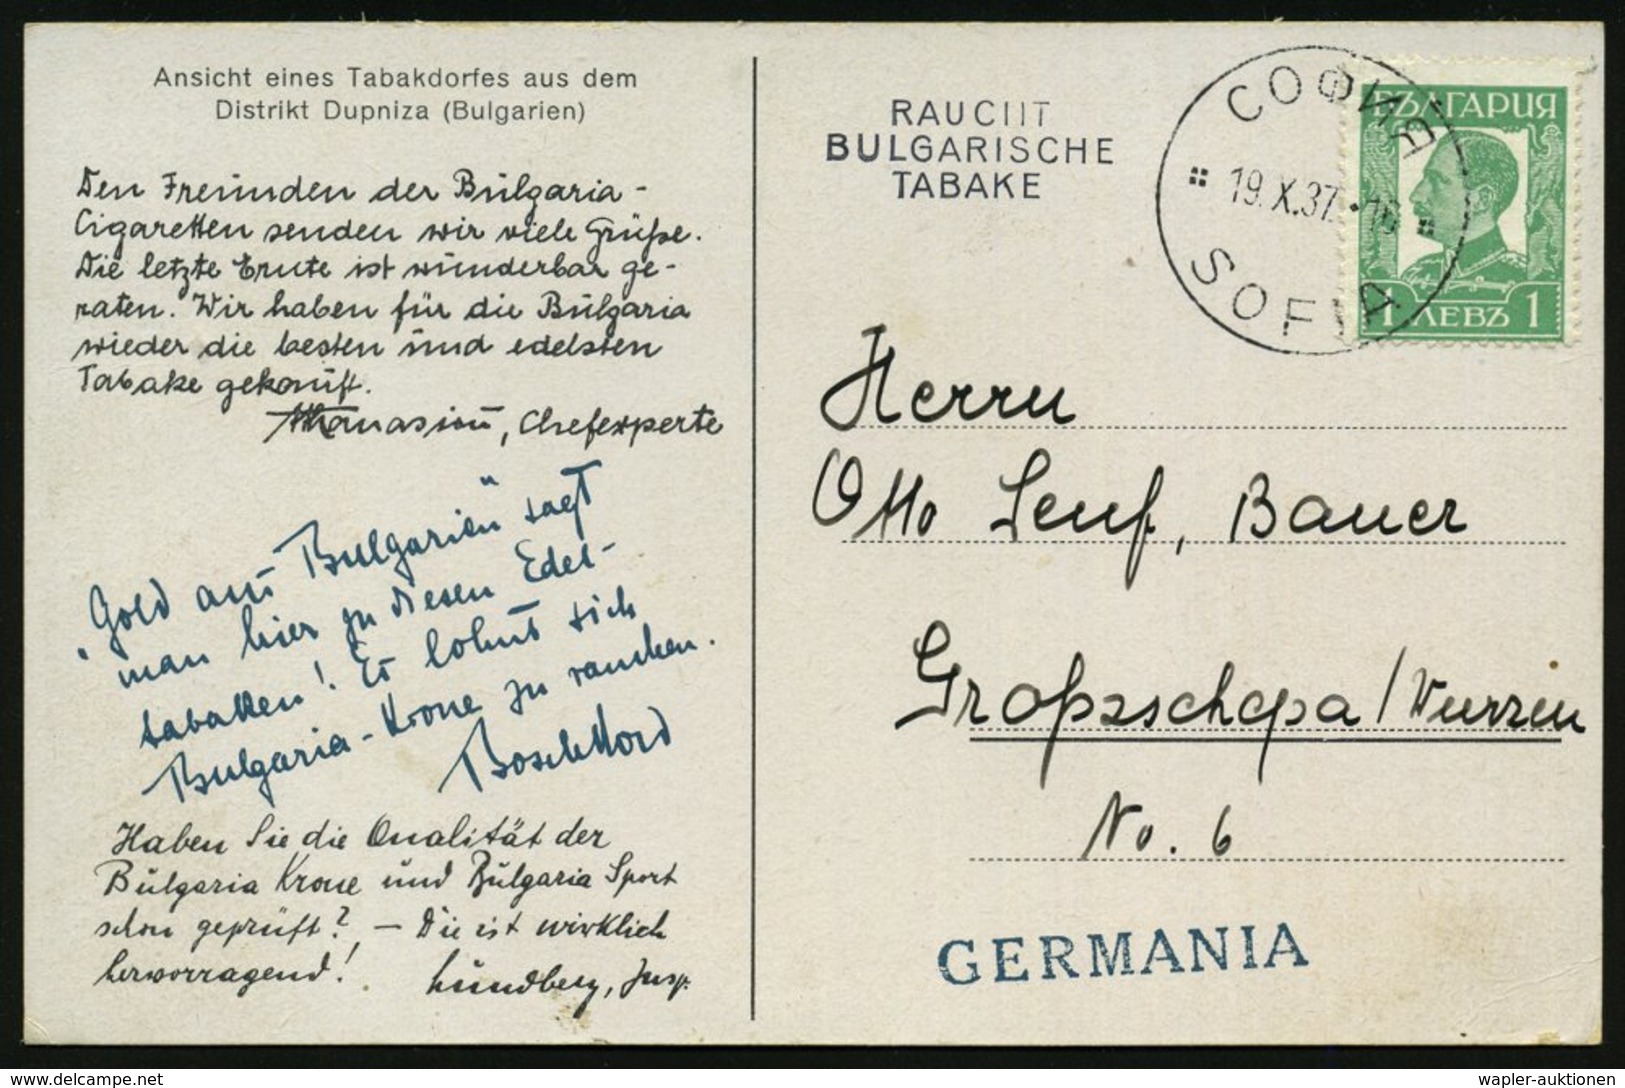 Ansicht eines Tabakdorfes aus dem
Distrikt Dupniza (Bulgarien)
Den Freunden der Bulgaria-
Cigaretten senden wir viele Grüße.
Die letzte Ernte ist wunderbar ge-
raten. Wir haben für die Bulgaria
wieder die besten und edelsten
Tabake gekauft.
Athanasiou, Chefexperte
"Gold aus Bulgarien" sagt
man hier zu diesen Edel-
tabaken! Es lohnt sich
Bulgaria-Krone zu rauchen.
Haben Sie die Qualität der
Bulgaria Krone und Bulgaria Sport
schon geprüft? – Die ist wirklich
hervorragend!
Lundberg, Insp.
RAUCHT
BULGARISCHE
TABAKE
СОФИЯ
19.X.37.
SOFIA
БЪЛГАРИЯ
1 ЛЕВЪ 1
Herrn
Otto Senf, Bauer
Großzschepa/Wurzen
No. 6
GERMANIA
wapler-auktionen